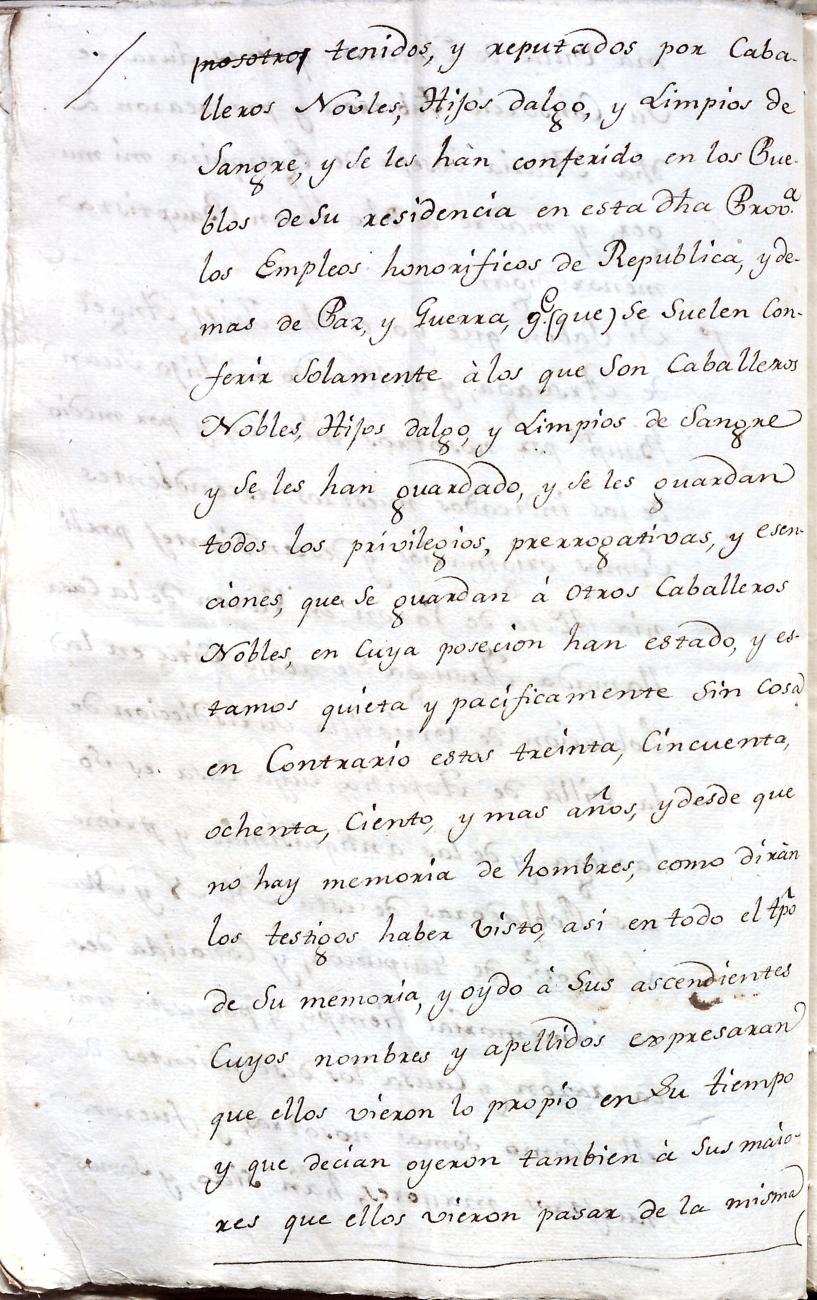 nosotros tenidos, y reputados por Caba-
lleros Novles, Hijos dalgo, y Limpios de
Sangre, y se les hàn conferido en los Pue-
blos de su residencia en esta dha Provª
los Empleos honorificos de Republica, y de-
mas de Paz, y Guerra, qe (que) se suelen Con-
ferir solamente à los que son Caballeros
Nobles, Hijos dalgo, y Limpios de Sangre
y se les han guardado, y se les guardan
todos los privilegios, prerrogativas, y esen-
ciones, que se guardan á otros Caballeros
Nobles, en Cuya posecion han estado, y es-
tamos quieta y pacificamente sin cosa
en Contrario estos treinta, Cincuenta,
ochenta, Ciento, y mas años, y desde que
no hay memoria de hombres, como diràn
los testigos haber visto, asi en todo el tpõ
de su memoria, y oydo à sus ascendientes
Cuyos nombres y apellidos expresaran
que ellos vieron lo propio en su tiempo
y que decian oyeron tambien à sus maio-
res que ellos vieron pasar de la misma